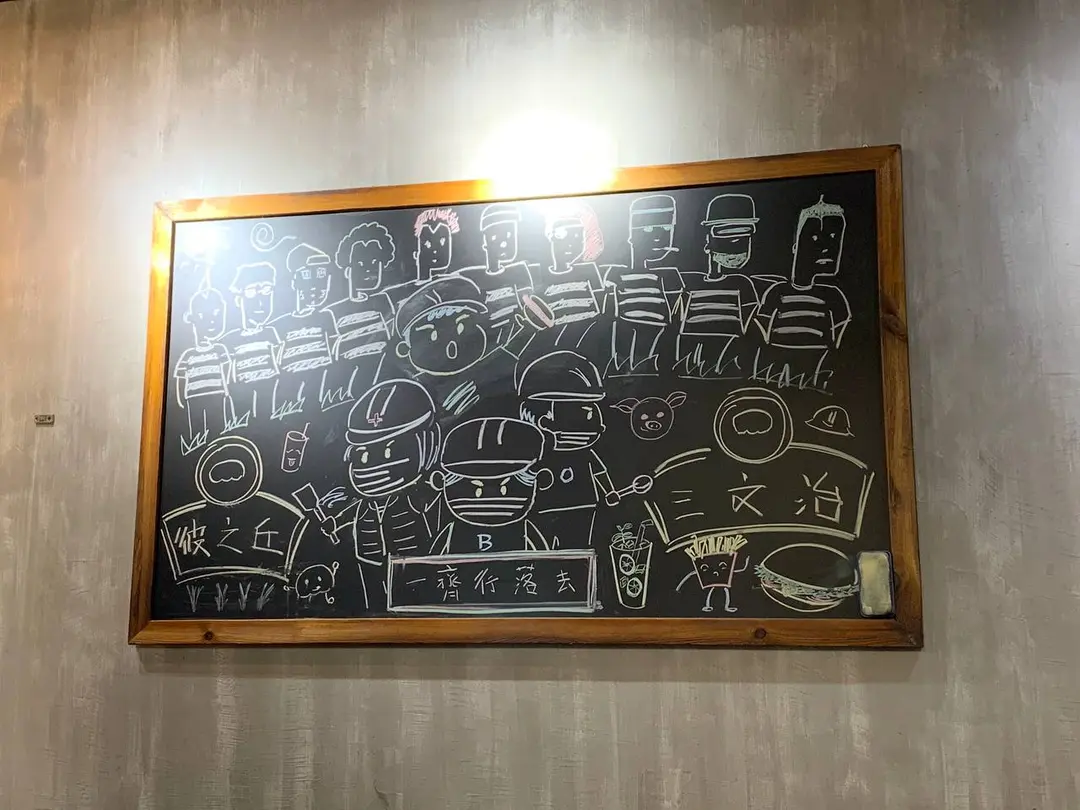 彼之丘
三文治
B
一齊行落去